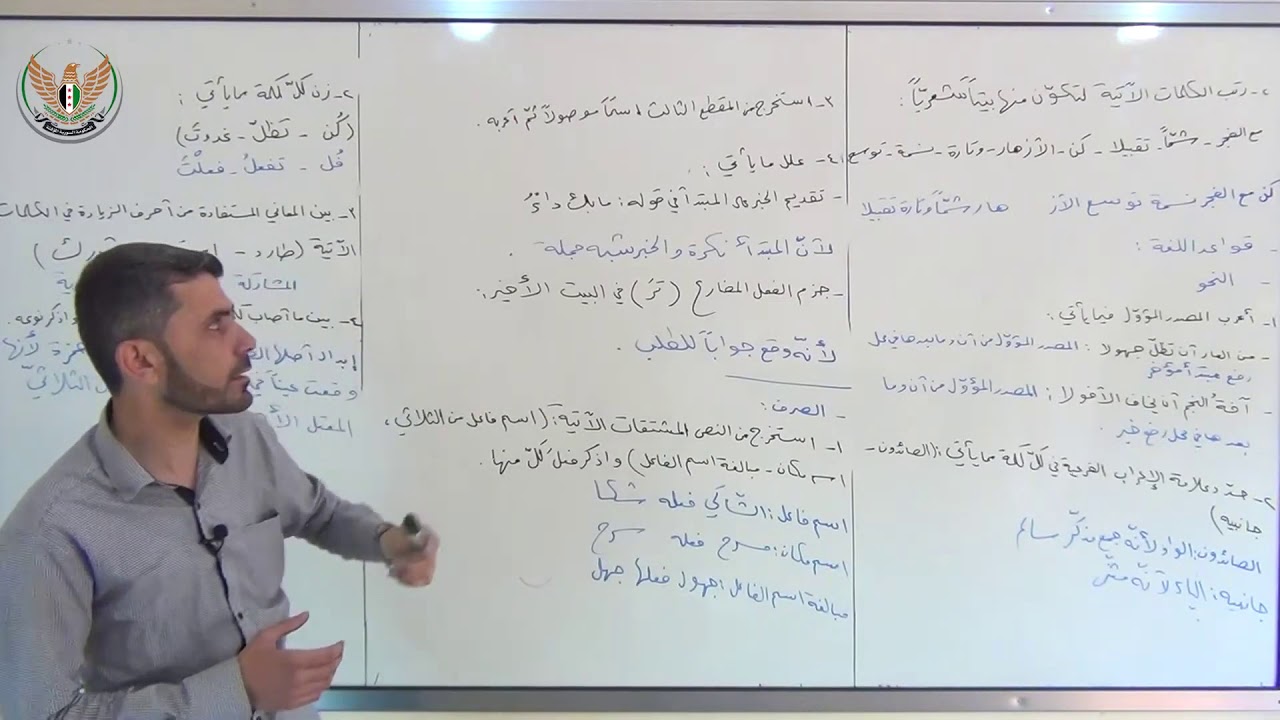 ٢- رتب الكلمات الآتية لتكوّن منها بيتاً شعريّاً :
مع الفجر - شمّاً - تقبيلا - كن - الأزهار - وتارة - نسمة - توسع
كن مع الفجر نسمة توسع الأز هار شمّاً وتارة تقبيلا
- قواعد اللغة :
- النحو
١- أعرب المصدر المؤوّل فيما يأتي :
- من العار أن تظلّ جهولا : المصدر المؤوّل من أن وما بعدها في محل
رفع مبتدأ مؤخر
- آفة النجم أن يخاف الأفولا : المصدر المؤوّل من أن وما
بعدها في محل رفع خبر .
٢- حدد علامة الإعراب الفرعية في كلّ كلمة مما يأتي : (الصائدون -
جانبيه)
الصائدون : الواو لأنّه جمع مذكّر سالم
جانبيه : الياء لأنّه مثنّى
٣- استخرج من المقطع الثالث اسماً موصولاً ثمّ أعربه .
٤- علل ما يأتي :
- تقديم الخبر على المبتدأ في قوله : ما بك داءٌ
لأنّ المبتدأ نكرة والخبر شبه جملة .
- جزم الفعل المضارع (تَرَ) في البيت الأخير :
لأنّه وقع جواباً للطلب .
- الصرف :
١- استخرج من النص المشتقات الآتية : (اسم فاعل من الثلاثي ،
اسم مكان - مبالغة اسم الفاعل) واذكر فعل كلّ منها .
اسم فاعل : الشاكي فعله شكا
اسم مكان : مسرح فعله سرح
مبالغة اسم الفاعل : جهول فعلها جهل
٢- زن كلّ كلمة مما يأتي :
(كُن - تظلّ - غدوتَ)
فُل - تفعلُ - فعلْتَ
٣- بين المعاني المستفادة من أحرف الزيادة في الكلمات
الآتية (طارد -
المشاركة
٤- بين ما أصاب واذكر نوعه .
أصلها همزة لأنها
وقعت عيناً الثلاثيّ
المعتل